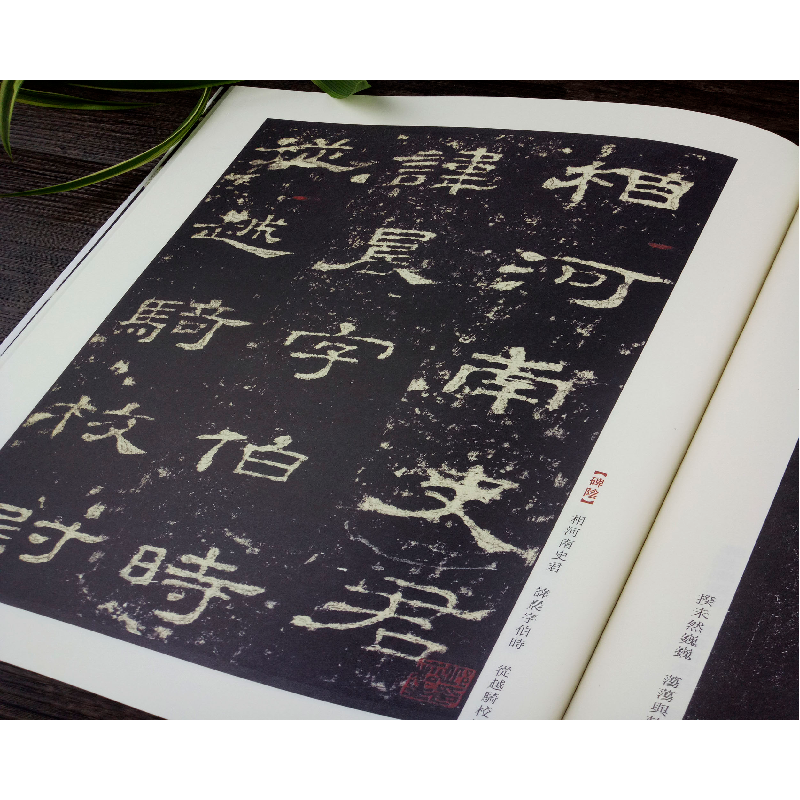 相河南史君
諱晨字伯時
從越騎校尉
【碑陰】 相河南史君 諱晨字伯時 從越騎校
揆未然巍巍 蕩蕩與